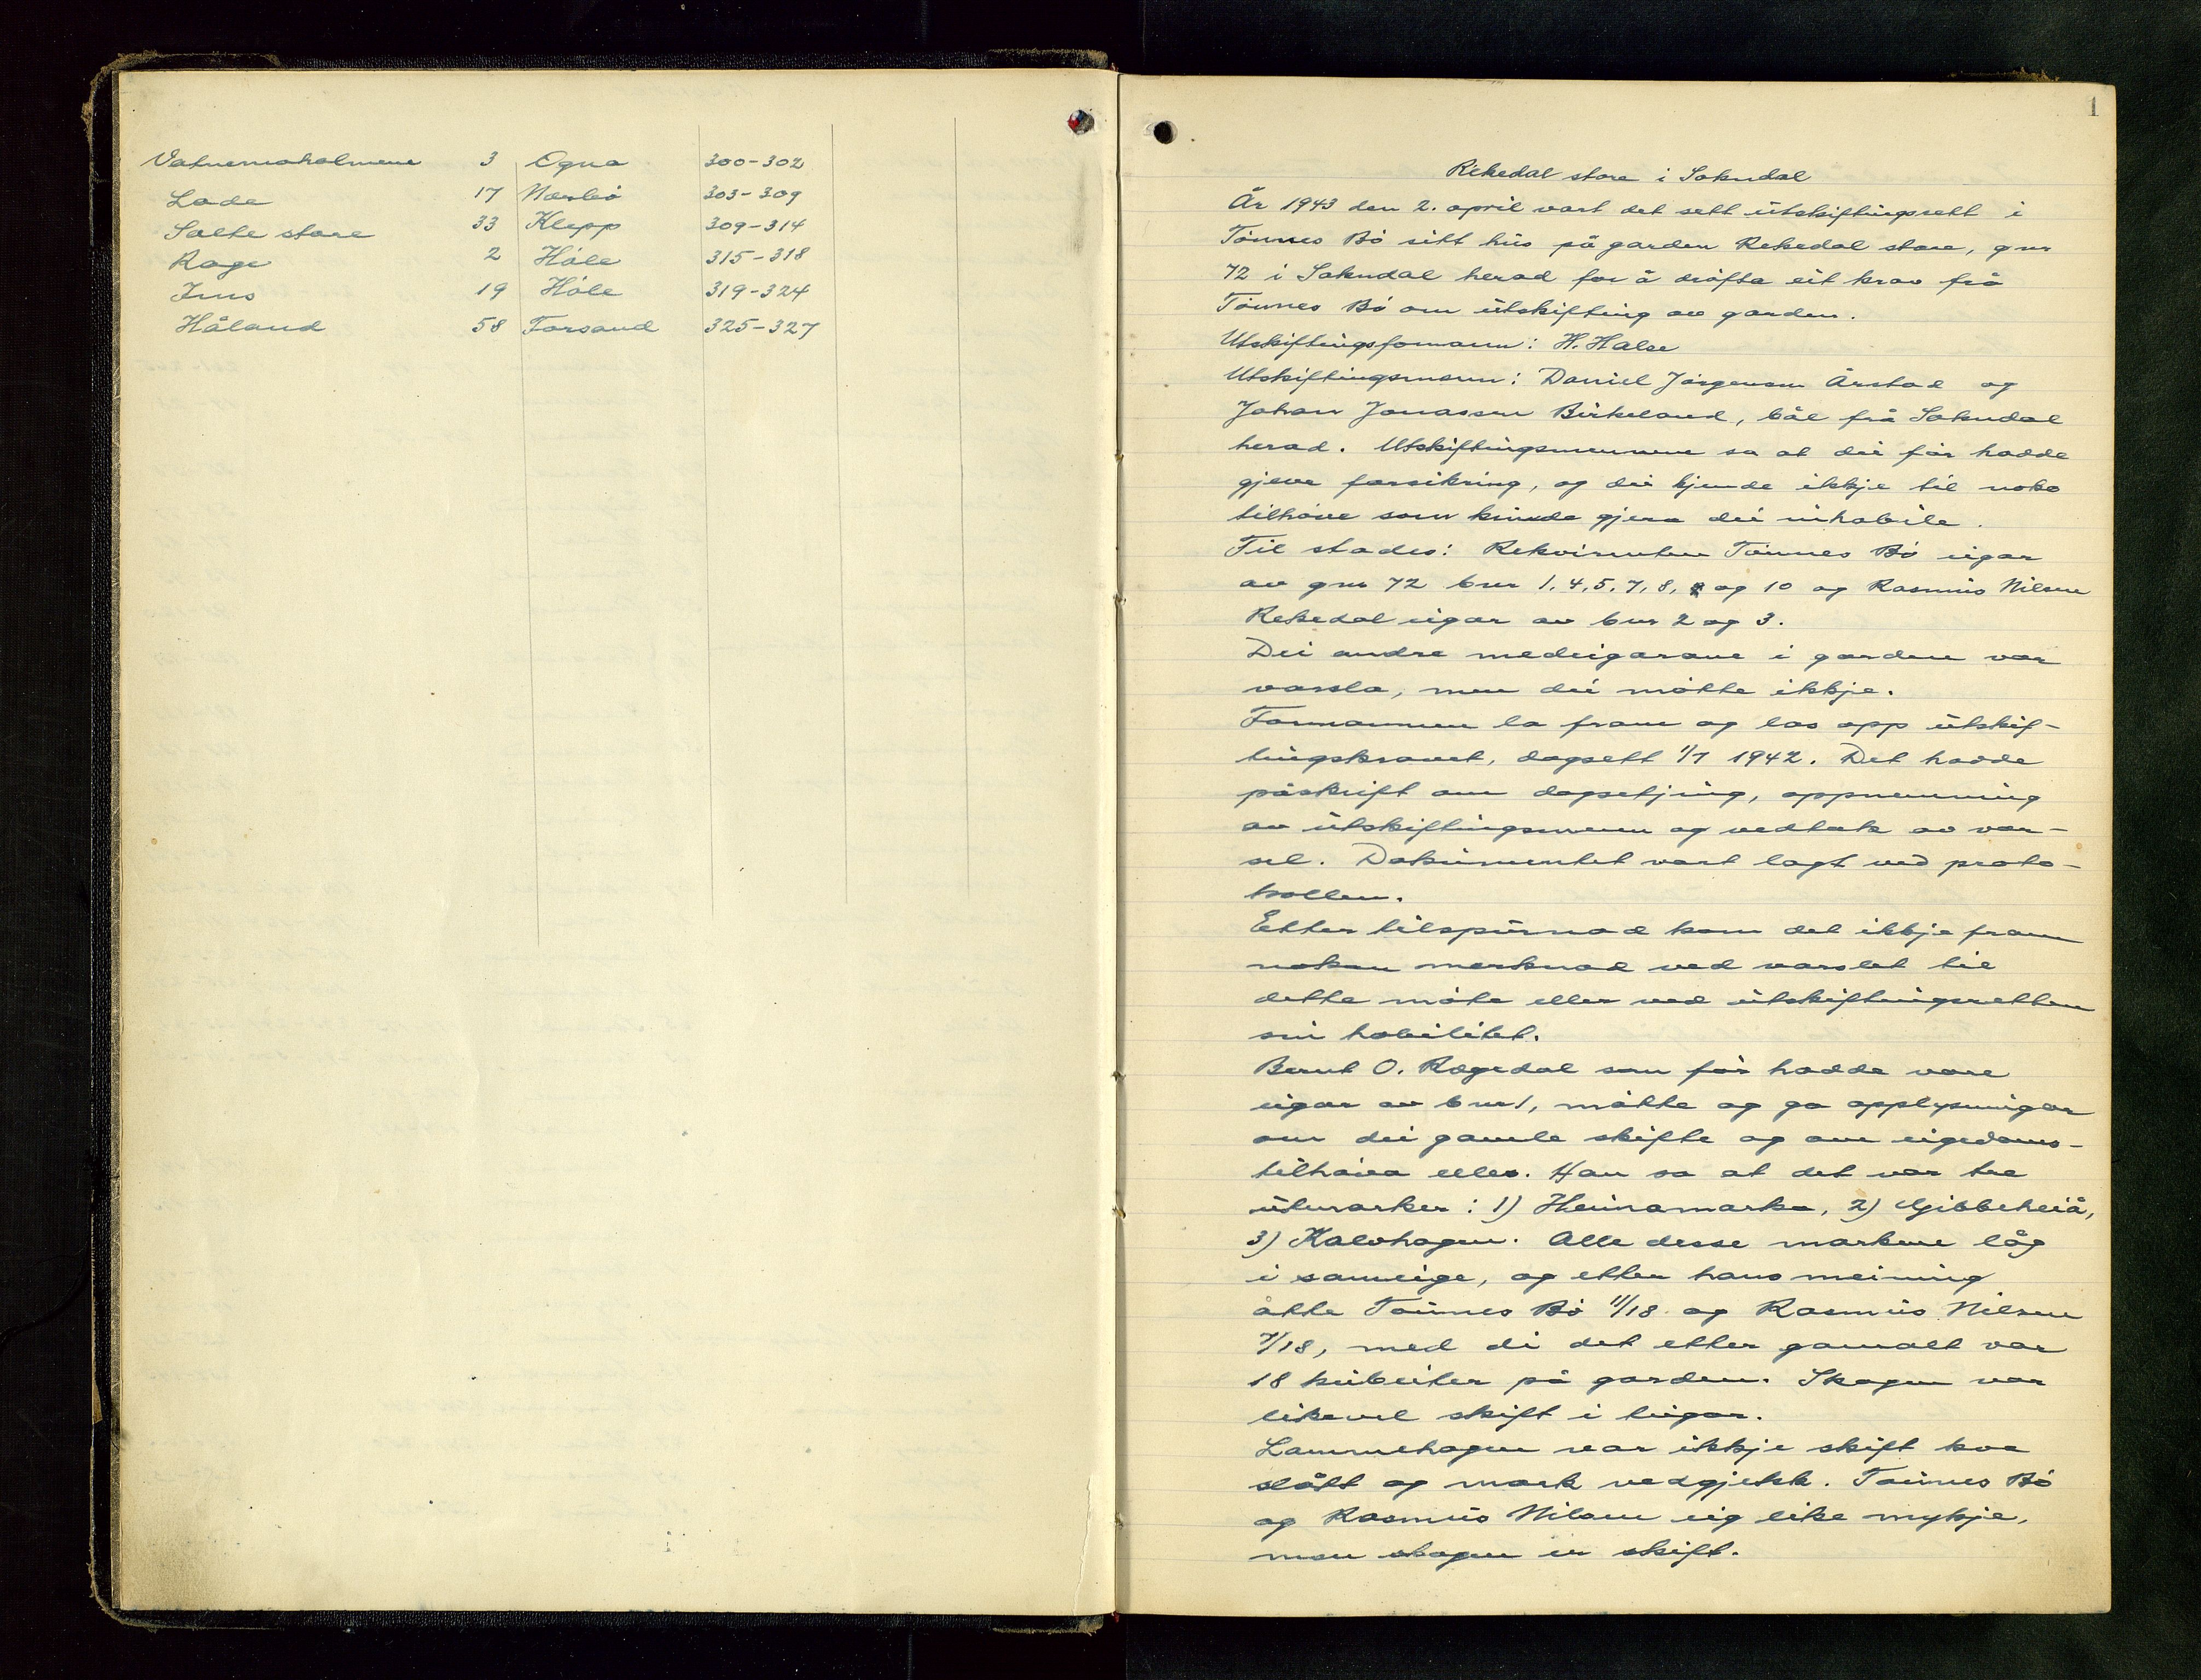 Vatnemoholmene 3 Ogna 300-302
Lode 17 Nærbø 303-309
Salte store 33 Klepp 309-314
Rage 2 Høle 315-318
Ims 19 Høle 319-324
Håland 58 Forsand 325-327
1
Rekedal store i Sokndal
År 1943 den 2. april vart det sett utskiftingsrett i
Tønnes Bø sitt hus på garden Rekedal store, gnr
72 i Sokndal herad for å drøfta eit krav frå
Tønnes Bø om utskifting av garden.
Utskiftingsformann: H. Halse
Utskiftingsmenn: Daniel Jørgensen Årstad og
Johan Jonassen Birkeland, båe frå Sokndal
herad. Utskiftingsmennene sa at dei før hadde
gjeve forsikring, og dei kjende ikkje til noko
tilhøve som kunde gjera dei uhabile.
Til stades: Rekvirenten Tønnes Bø eigar
av gnr 72 bnr 1, 4, 5, 7, 8, og 10 og Rasmus Nilsen
Rekedal eigar av bnr 2 og 3.
Dei andre medeigarane i garden var
varsla, men dei møtte ikkje.
Formannen la fram og las opp utskif-
tingskravet, dagsett 1/7 1942. Det hadde
påskrift om dagsetjing, oppnemning
av utskiftingsmenn og vedtak av var-
sel. Dokumentet vart lagt ved proto-
kollen.
Etter tilspurnad kom det ikkje fram
nokon merknad ved varslet til
dette møte eller ved utskiftingsretten
sin habilitet.
Bernt O. Rægedal som før hadde vore
eigar av bnr 1, møtte og ga opplysningar
om dei gamle skifte og om eigedoms-
tilhøva elles. Han sa at det var tre
utmarker: 1) Heimamarka, 2) Gjibbeheiå,
3) Kalvhagen. Alle desse markene låg
i sameige, og etter hans meining
åtte Tønnes Bø 11/18 og Rasmus Nilsen
7/18, med di det etter gamalt var
18 kubeiter på garden. Skogen var
likevel skift i teigar.
Lammehagen var ikkje skift kva
slått og mark vedgjekk. Tønnes Bø
og Rasmus Nilsen eig like mykje,
men skogen er skift.